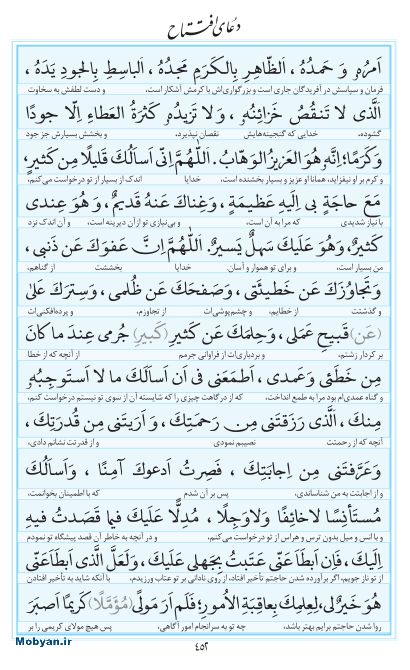 دعای افتتاح
اَمرُهُ وَ حَمدُهُ ، اَلظّاهِرِ بِالكَرَمِ مَجدُهُ ، اَلباسِطِ بِالجودِ يَدَهُ ،
فرمان و سپاسش در آفریدگان جاری است و بزرگواری‌اش با کرمش آشکار است، و دست لطفش به سخاوت
اَلَّذى لا تَنقُصُ خَزائِنُهُ ، وَ لا تَزيدُهُ كَثرَةُ العَطاءِ اِلّا جودًا
گشوده، خدایی که گنجینه‌هایش نقصان نپذیرد، و بخشش بسیارش جز جود
وَ كَرَمًا؛ اِنَّهُ هُوَ العَزيزُ الوَهّابُ. اَللّهُمَّ اِنّى اَسأَلُكَ قَليلًا مِن كَثيرٍ،
و کرم بر او نیفزاید، همانا او عزیز و بسیار بخشنده است. خدایا اندک از بسیار از تو درخواست می‌کنم،
مَعَ حاجَةٍ بى اِلَيهِ عَظيمَةٍ ، وَ غِناكَ عَنهُ قَديمٌ ، وَ هُوَ عِندى
با نیاز شدیدی که مرا به آن است، و بی‌نیازی تو از آن دیرینه است، و آن اندک نزد
كَثيرٌ، وَ هُوَ عَلَيكَ سَهلٌ يَسيرٌ. اَللّهُمَّ اِنَّ عَفوَكَ عَن ذَنبى ،
من بسیار است، و برای تو هموار و آسان. خدایا بخششت از گناهم،
وَ تَجاوُزَكَ عَن خَطيئَتى ، وَ صَفحَكَ عَن ظُلمى ، وَ سِترَكَ عَلىٰ
و گذشتت از خطایم، و چشم‌پوشی‌ات از تجاوزم، و پرده‌افکنی‌ات
(عَن) قَبيحِ عَمَلى ، وَ حِلمَكَ عَن كَثيرِ (كَبيرِ) جُرمى عِندَ ما كانَ
بر کردار زشتم، و بردباری‌ات از فراوانی جرمم از آنچه که از خطا
مِن خَطَئى وَ عَمدى ، اَطمَعَنى فى اَن اَسأَلَكَ ما لا اَستَوجِبُهُ
و گناه عمدی‌ام بود مرا به طمع انداخت، که از درگاهت چیزی را که شایسته آن از سوی تو نیستم درخواست کنم،
مِنكَ ، اَلَّذى رَزَقتَنى مِن رَحمَتِكَ ، وَ اَرَيتَنى مِن قُدرَتِكَ ،
آنچه که از رحمتت نصیبم نمودی و از قدرتت نشانم دادی،
وَ عَرَّفتَنى مِن اِجابَتِكَ ، فَصِرتُ اَدعوكَ آمِنًا ، وَ اَسأَلُكَ
و از اجابتت به من شناساندی، پس بر آن شدم که با اطمینان بخوانمت،
مُستَأنِسًا لا خائِفًا وَ لا وَجِلًا ، مُدِلًّا عَلَيكَ فيما قَصَدتُ فيهِ
و با انس و میل بدون ترس و هراس از تو درخواست می‌کنم، و در آنچه به خاطر آن قصد پیشگاه تو نمودم
اِلَيكَ ، فَاِن اَبطَأَ عَنّى عَتَبتُ بِجَهلى عَلَيكَ ، وَ لَعَلَّ الَّذى اَبطَأَ عَنّى
از تو ناز جویم، اگر برآورده شدن حاجتم تأخیر افتاد، از روی نادانی بر تو عتاب ورزیدم، با آنکه شاید به تأخیر افتادن
هُوَ خَيرٌ لى، لِعِلمِكَ بِعاقِبَةِ الاُمورِ؛ فَلَم اَرَ مَولًى (مُؤَمَّلًا) كَريمًا اَصبَرَ
روا شدن حاجتم برایم بهتر باشد، چه تو به سرانجام امور آگاهی، پس هیچ مولای کریمی را بر
Mobyan.ir
۴۵۲